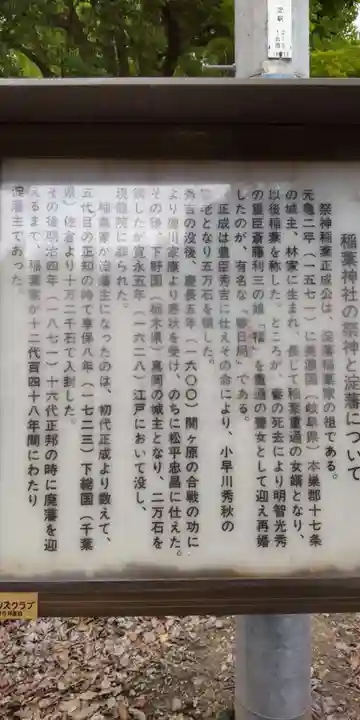 稲葉神社の祭神と淀藩について
祭神稲葉正成公は、淀藩稲葉家の祖である。
元亀二年(一五七一)に美濃国(岐阜県)本巣郡十七条
の城主、林家に生まれ、長じて稲葉重通の女婿となり、
以後稲葉を称した。ところが、妻の死去により明智光秀
の重臣斎藤利三の娘「福」を重通の養女として迎え再婚
したのが、有名な「春日局」である。
正成は豊臣秀吉に仕えその命により、小早川秀秋の
家老となり五万石を領した。
秀吉の没後、慶長五年(一六〇〇)関ヶ原の合戦の功に
より徳川家康より恩状を受け、のちに松平忠昌に仕えた。
その後、下野国(栃木県)真岡の城主となり、二万石を
領したが寛永五年(一六二八)江戸において没し、
現龍院に葬られた。
稲葉家が淀藩主になったのは、初代正成より数えて、
五代目の正知の時で享保八年(一七二三)下総国(千葉
県)佐倉より十万二千石で入封した。
その後明治四年(一八七一)十六代正邦の時に廃藩を迎
えるまで、稲葉家が十二代百四十八年間にわたり
淀藩主であった。